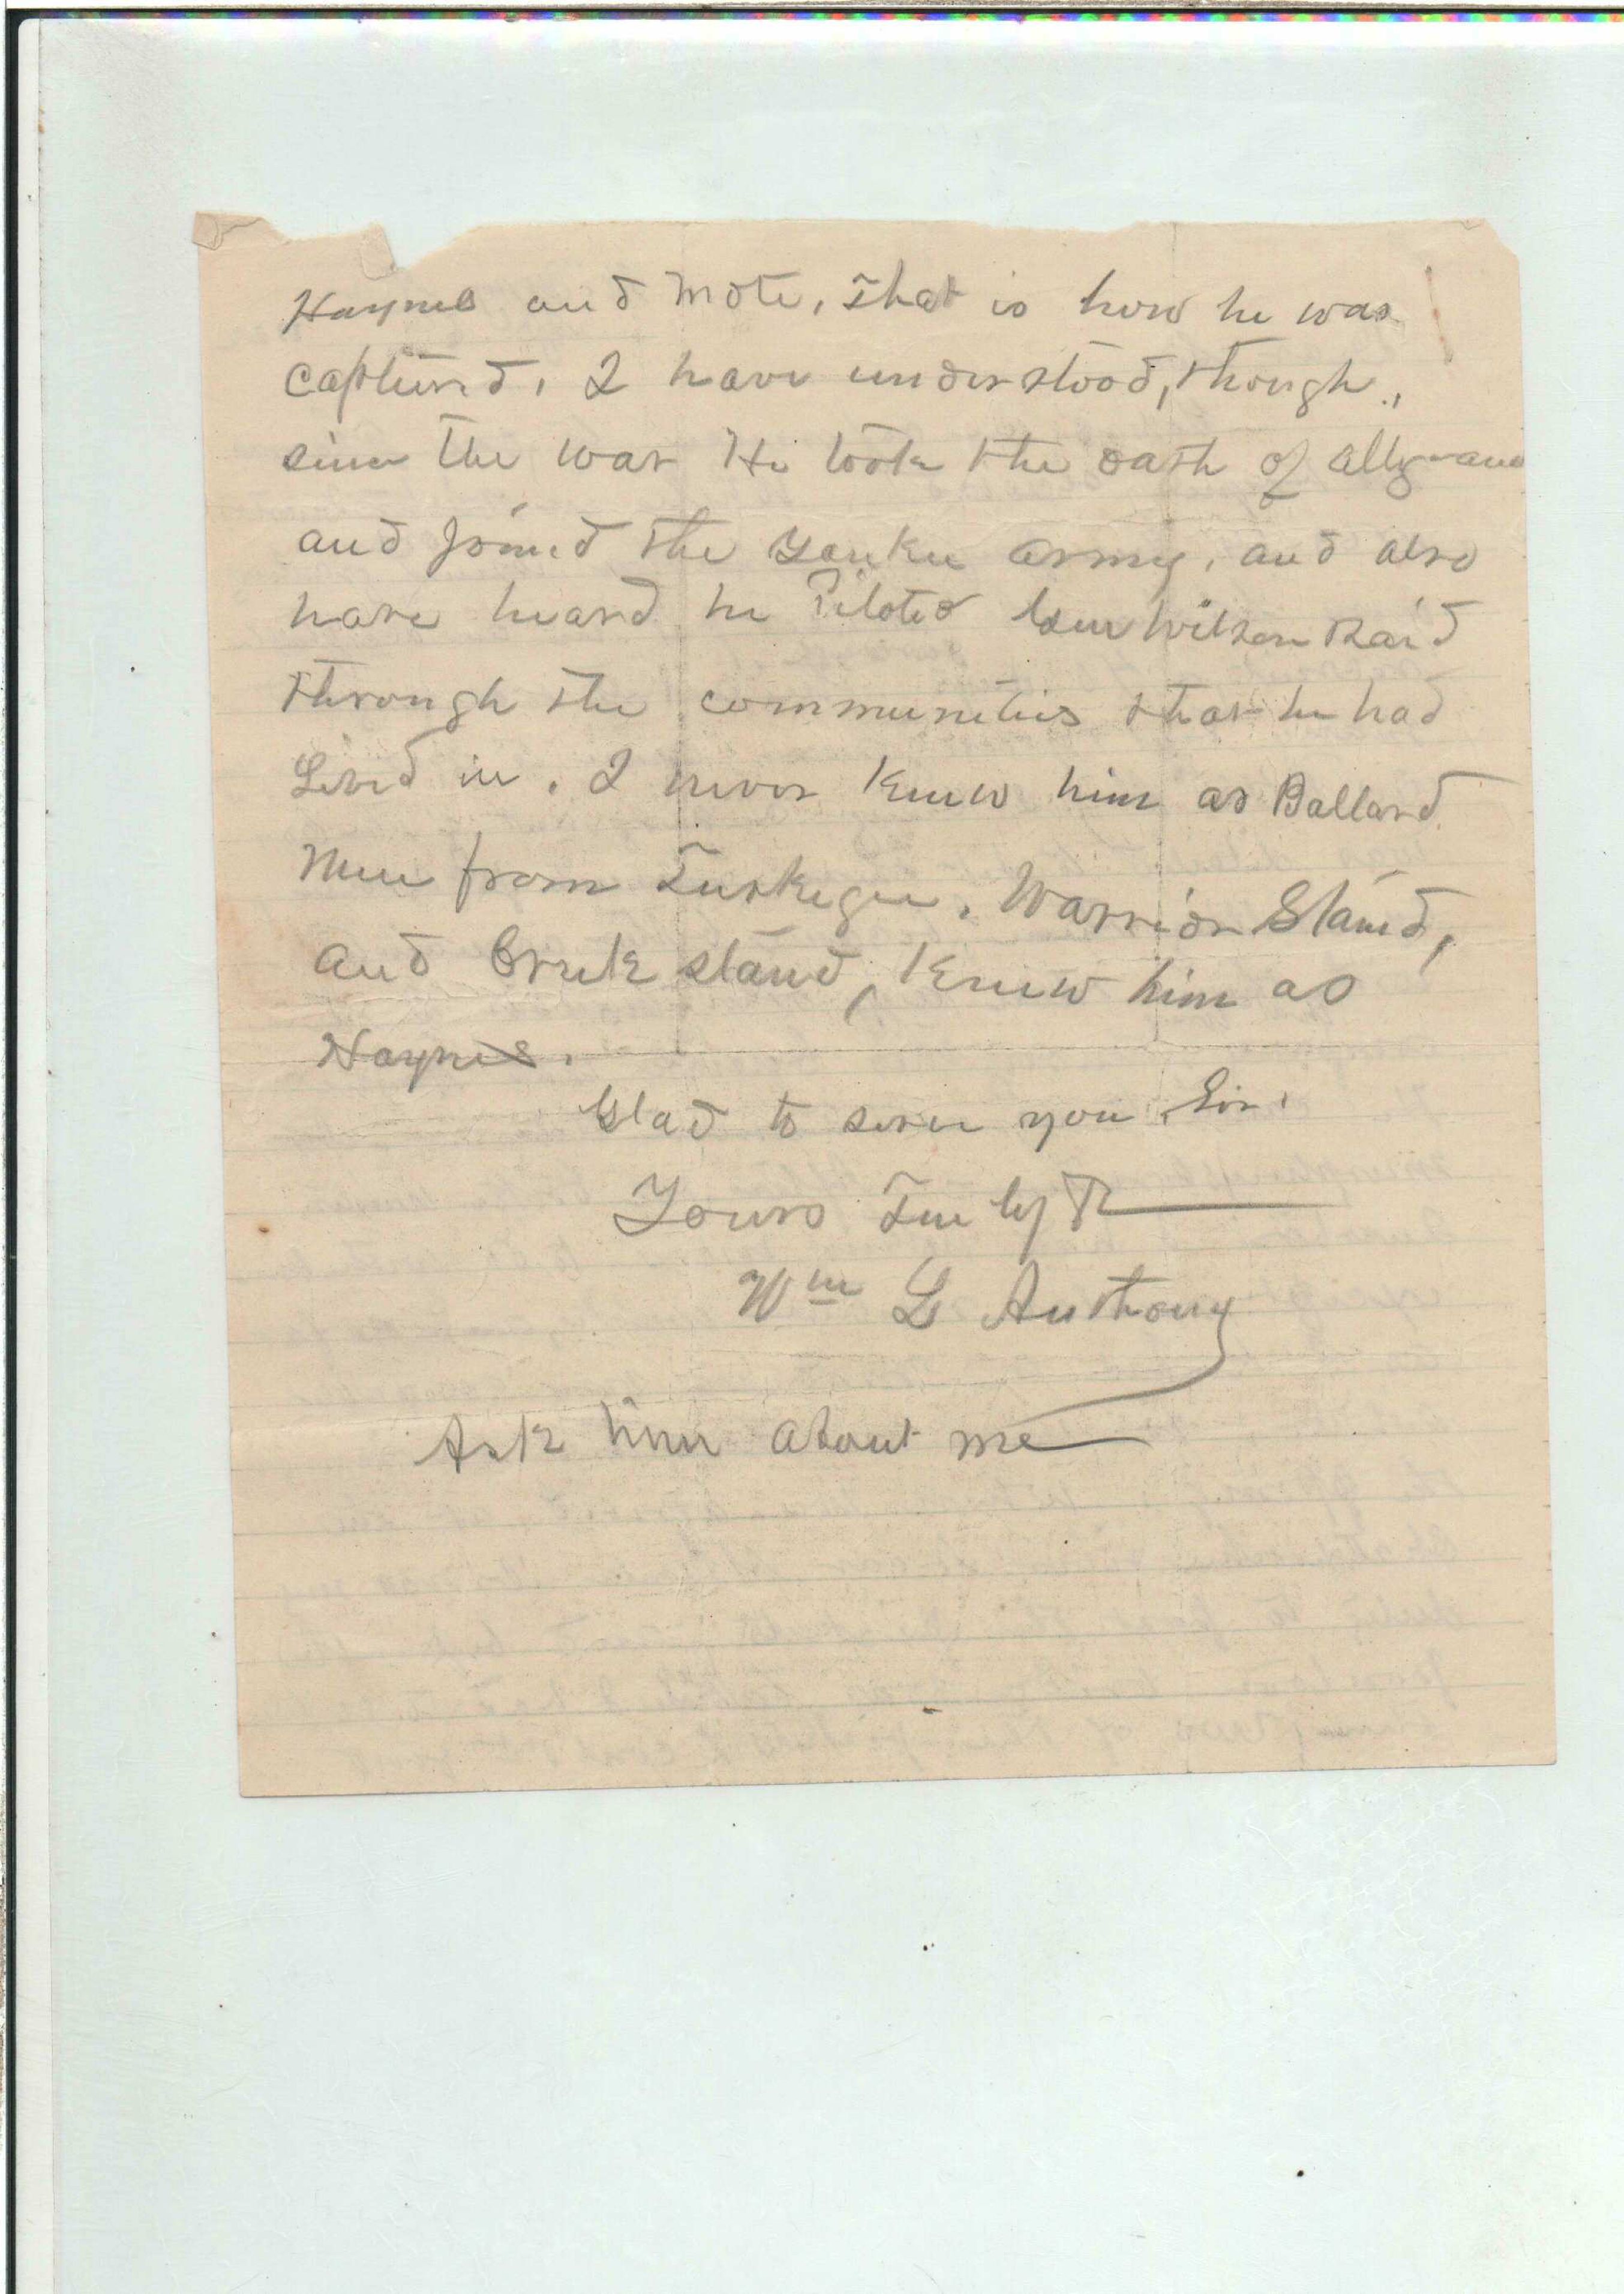 Haynes and Mote, That is how he was
captured, I have understood, though,
since the war He took the oath of allegance
and joined the Yankee army, and also
have heard he Piloted Gen Wilson Raid
through the communities that he had
Lived in. I never knew him as Ballard
Men from Tuskegee, Warrior Stand,
and Creek stand, knew him as
Haynes.
Glad to serve you Sir.
Yours Truly
Wm L Anthony
Ask him about me